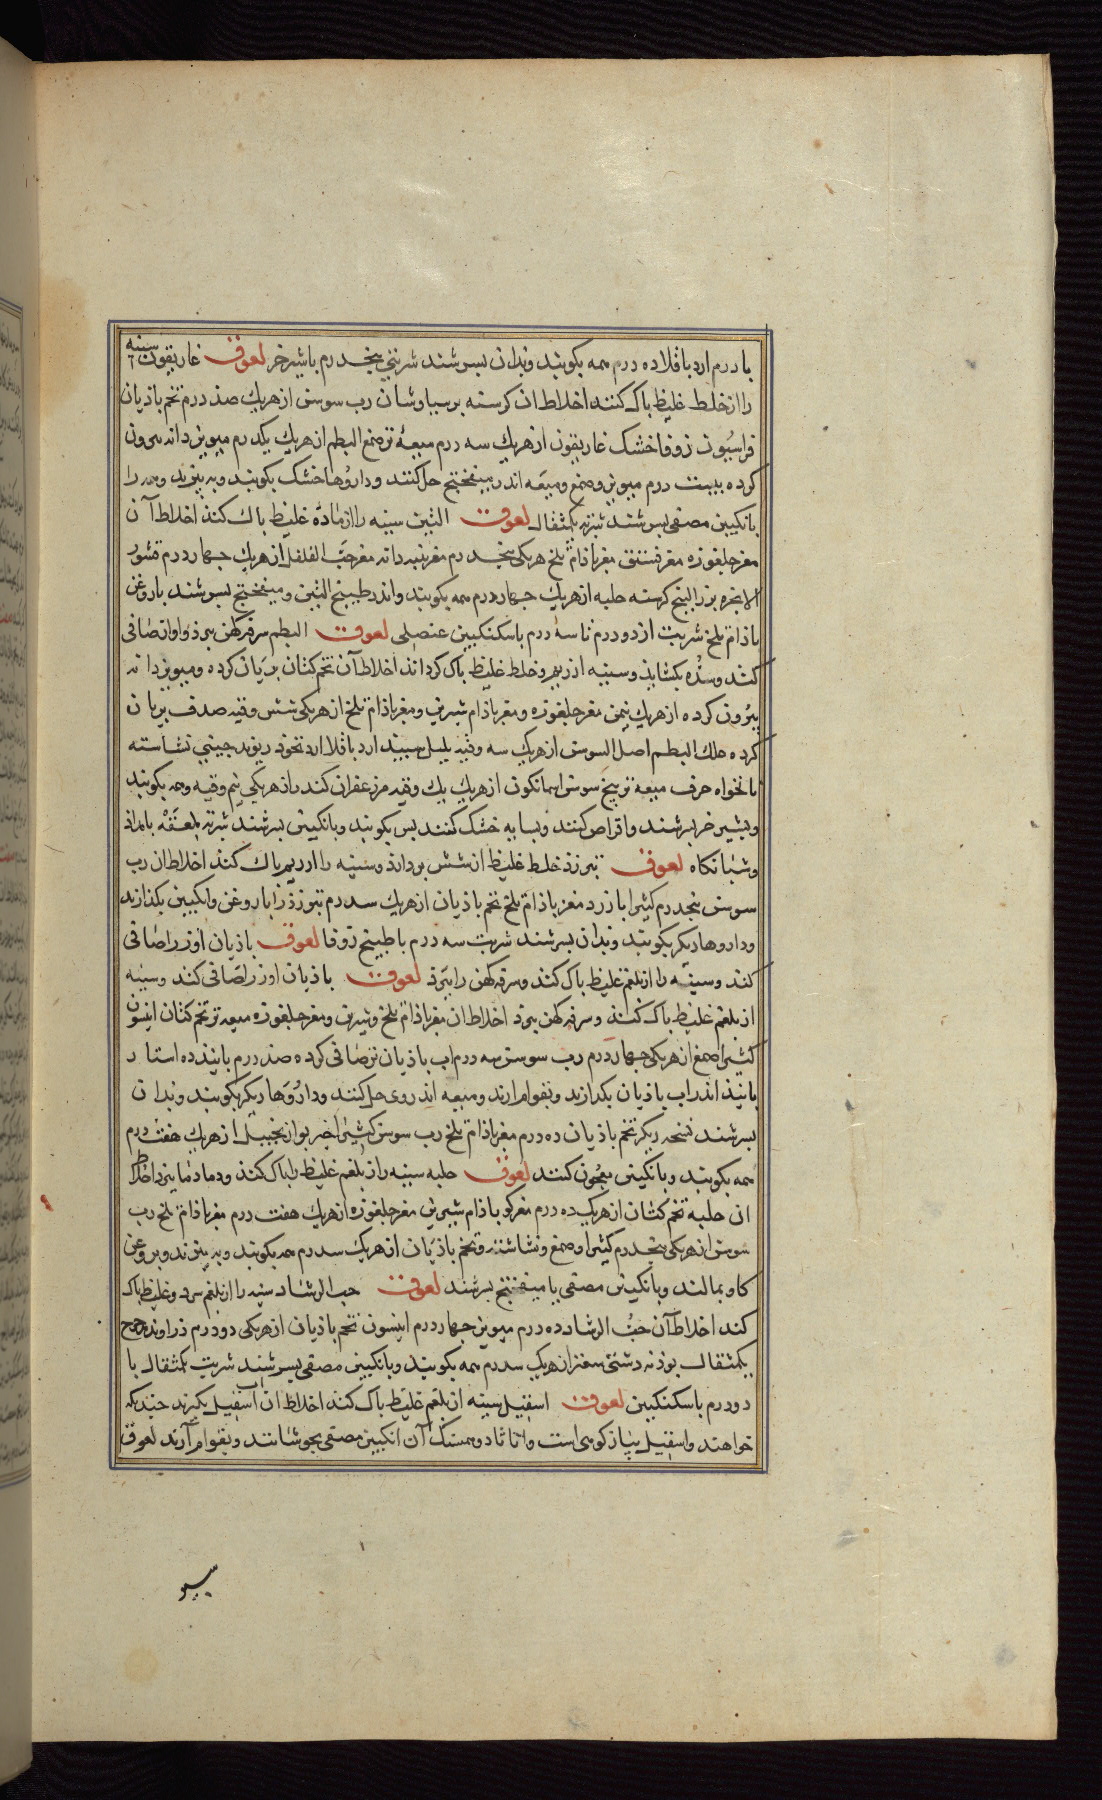 با درم ارد باقلا ده درم همه بکوبند و بدان بسرشند شربتی پنجدرم با شیر خر لعوق غاریقون سینه
را از خلط غلیظ باک کنند اخلاط ان کرسنه برسیاوشان رب سوس از هریک صد درم تخم باذیان
فراسیون زوفا خشک غاریقون از هریک سه درم میعهٔ تر صمغ البطم از هریک یکدرم میویز دانه بیرون
کرده بیست درم میویز و صمغ و میعه اندر میفختج حل کنند و داروها خشک بکوبند و ببیزند و همه را
بانکبین مصفی بسرشند شربتی یکمثقال لعوق التین سینه را از ماده غلیظ باک کند اخلاط آن
مغز جلغوزه مغز فستق مغز باذام تلخ هریکی پنجدرم مغز پنبه دانه مغز حب الفلفل از هریک چهار درم قشور
الانجره بزر البنج کرسنه حلبه از هریک چهار درم همه بکوبند و اندر طبیخ التین و میفختج بسرشند با روغن
باذام تلخ شربت از دو درم تا سه درم با سکنکبین عنصلی لعوق البطم سرفه کهن ببرذ و اواز صافی
کند و سده بکشاید و سینه از ریم و خلط غلیظ باک کرداند اخلاط آن تخم کتان بریان کرده و میویز دانه
بیرون کرده از هریک نیمن مغز جلغوزه و مغز باذام شیرین و مغز باذام تلخ از هریکی شش وقیه صدف بریان
کرده علک البطم اصل السوس از هریک سه وقیه پلپل سپید ارد باقلا ارد نخود ریوند چینی نشاسته
نانخواه حرف میعه تر بیخ سوس اسمانکون از هریک یک وقیه مر زعفران کندر از هریکی نیم وقیه و همه بکوبند
و بشیر خر بسرشند و اقراص کنند و بسایه خشک کنند پس بکوبند و بانکبین بسرشند شربتی ملعقه بامداذ
و شبانکاه لعوق تبرزذ خلط غلیظ از شش برداند و سینه را از ریم باک کند اخلاط ان رب
سوس پنجدرم کثیرا بازرد مغز باذام تلخ تخم باذیان از هریک سدرم تبرزذ را با روغن و انکبین بکدازند
و داروها دیکر بکوبند و بدان بسرشند شربت سه درم با طبیخ زوفا لعوق باذیان اواز را صافی
کند و سینه را از بلغم غلیظ باک کند و سرفه کهن را ببرذ لعوق باذیان اواز را صافی کند و سینه
از بلغم غلیظ باک کند و سرفه کهن ببرذ اخلاط ان مغز باذام تلخ و شیرین و مغز جلغوزه میعه تر تخم کتان انیسون
کثیرا صمغ از هریکی چهار درم رب سوس سه درم اب باذیان تر صافی کرده صد درم بانیذ ده استار
بانیذ اندر اب باذیان بکدازند و بقوام ارند و میعه اندر وی حل کنند و داروها دیکر بکوبند و بدان
بسرشند نسخه دیکر تخم باذیان ده درم مغز باذام تلخ رب سوس کثیرا زنجبیل از هریک هفت درم
همه بکوبند و بانکبین معجون کنند لعوق حلبه سینه را از بلغم غلیظ باک کند و دمادم ببرذ اخلاط
ان حلبه تخم کتان از هریک ده درم مغز کوز باذام شیرین مغز جلغوزه از هریک هفت درم مغز باذام تلخ رب
سوس از هریکی پنجدرم کثیرا و صمغ و نشاشته و تخم باذیان از هریک سدرم همه بکوبند و ببیزند و بروغن
کاو بمالند و بانکبین مصفی یا میفختج بسرشند لعوق حب الرشاد سینه را از بلغم سرد و غلیظ باک
کند اخلاط آن حب الرشاد ده درم میویز چهار درم انیسون تخم باذیان از هریکی دو درم زراوند مدحرج
یکمثقال بوذنه دشتی سعتر از هریک سدرم همه بکوبند و بانکبین مصفی بسرشند شربت یکمثقال با
دو درم با سکنکبین لعوق اسقیل سینه از بلغم غلیظ باک کند اخلاط ان اسقیل بکیرند چندانکه
خواهند و اسقیل پیاز کوهی است و همسنک آن انکبین مصفی بجوشانند و بقوام آرند لعوق